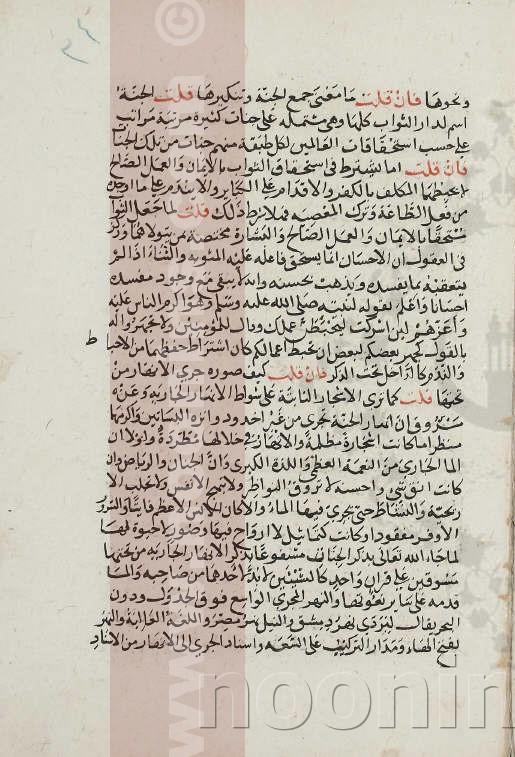 ونحوها فان قلت ما معنى جمع الجنة وتنكيرها قلت الجنة
اسم لدار الثواب كلها وهى مشتملة على جنات كثيرة مرتبة مراتب
على حسب استحقاقات العاملين لكل طبقة منهم جنات من تلك الجنان
فان قلت اما يشترط فى استحقاق الثواب بالايمان والعمل الصالح
ان لا يحبطهما المكلف بالكفر والاقدام على الكباير وان لا يندم على ما اوجده
من فعل الطاعة وترك المعصية فهلا شرط ذلك قلت لما جعل الثواب
مستحقا بالايمان والعمل الصالح والبشارة مختصة بمن يتولاهما وركز
فى العقول ان الاحسان انما يستحق فاعله عليه المثوبة والثناء اذا لم
يتعقبه بما يفسده ويذهب بحسنه وانه لا يبقى مع وجود مفسده
احسانا واعلم بقوله لنبيه صلى الله عليه وسلم وهو اكرم الناس عليه
واعزهم لين اشركت ليحبطن عملك وقال للمومنين ولا تجهروا له
بالقول كجهر بعضكم لبعض ان تحبط اعمالكم كان اشتراط حفظهما من الاحباط
والندم كالداخل تحت الذكر فان قلت كيف صورة جرى الانهار من
تحتها قلت كما ترى الاشجار النابتة على شواطى الانهار الجارية وعن
مسروق ان انهار الجنة تجرى من غير اخدود وانزه البساتين واكرمها
منظرا ما كانت اشجاره مظلة والانهار فى خلالها مطردة ولولا ان
الما الجارى من النعمة العظمى واللذة الكبرى وان الجنان والرياض وان
كانت انق شى واحسنه لا تروق النواظر ولا تبهج الانفس ولا تجلب الا
ريحية والنشاط حتى يجرى فيها الماء والا كان الانس الاعظم فايتا والسرور
الاوفر مفقودا وكانت كتماثيل لا ارواح فيها وصور لا حيوة لها
لما جاء الله تعالى بذكر الجنات مشفوعا بذكر الانهار الجارية من تحتها
مسوقين على قران واحد كالشيئين لا بد لاحدهما من صاحبه ولما
قدمه على ساير نعوتها والنهر المجرى الواسع فوق الجدول ودون
البحر يقال لبردى نهر دمشق وللنيل نهر مصر واللغة العالية والنهر
بفتح الهاء ومدار التركيب على السعة واسناد الجرى الى الانهار من الاسناد
noorin